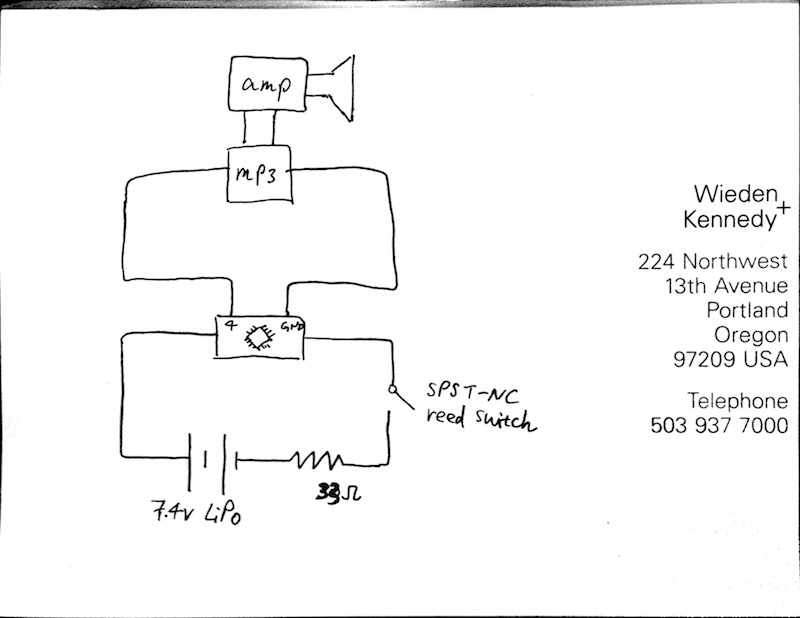 amp
mp3
4 GND
SPST-NC
reed switch
33Ω
7.4v LiPo
Wieden
+
Kennedy
224 Northwest
13th Avenue
Portland
Oregon
97209 USA
Telephone
503 937 7000